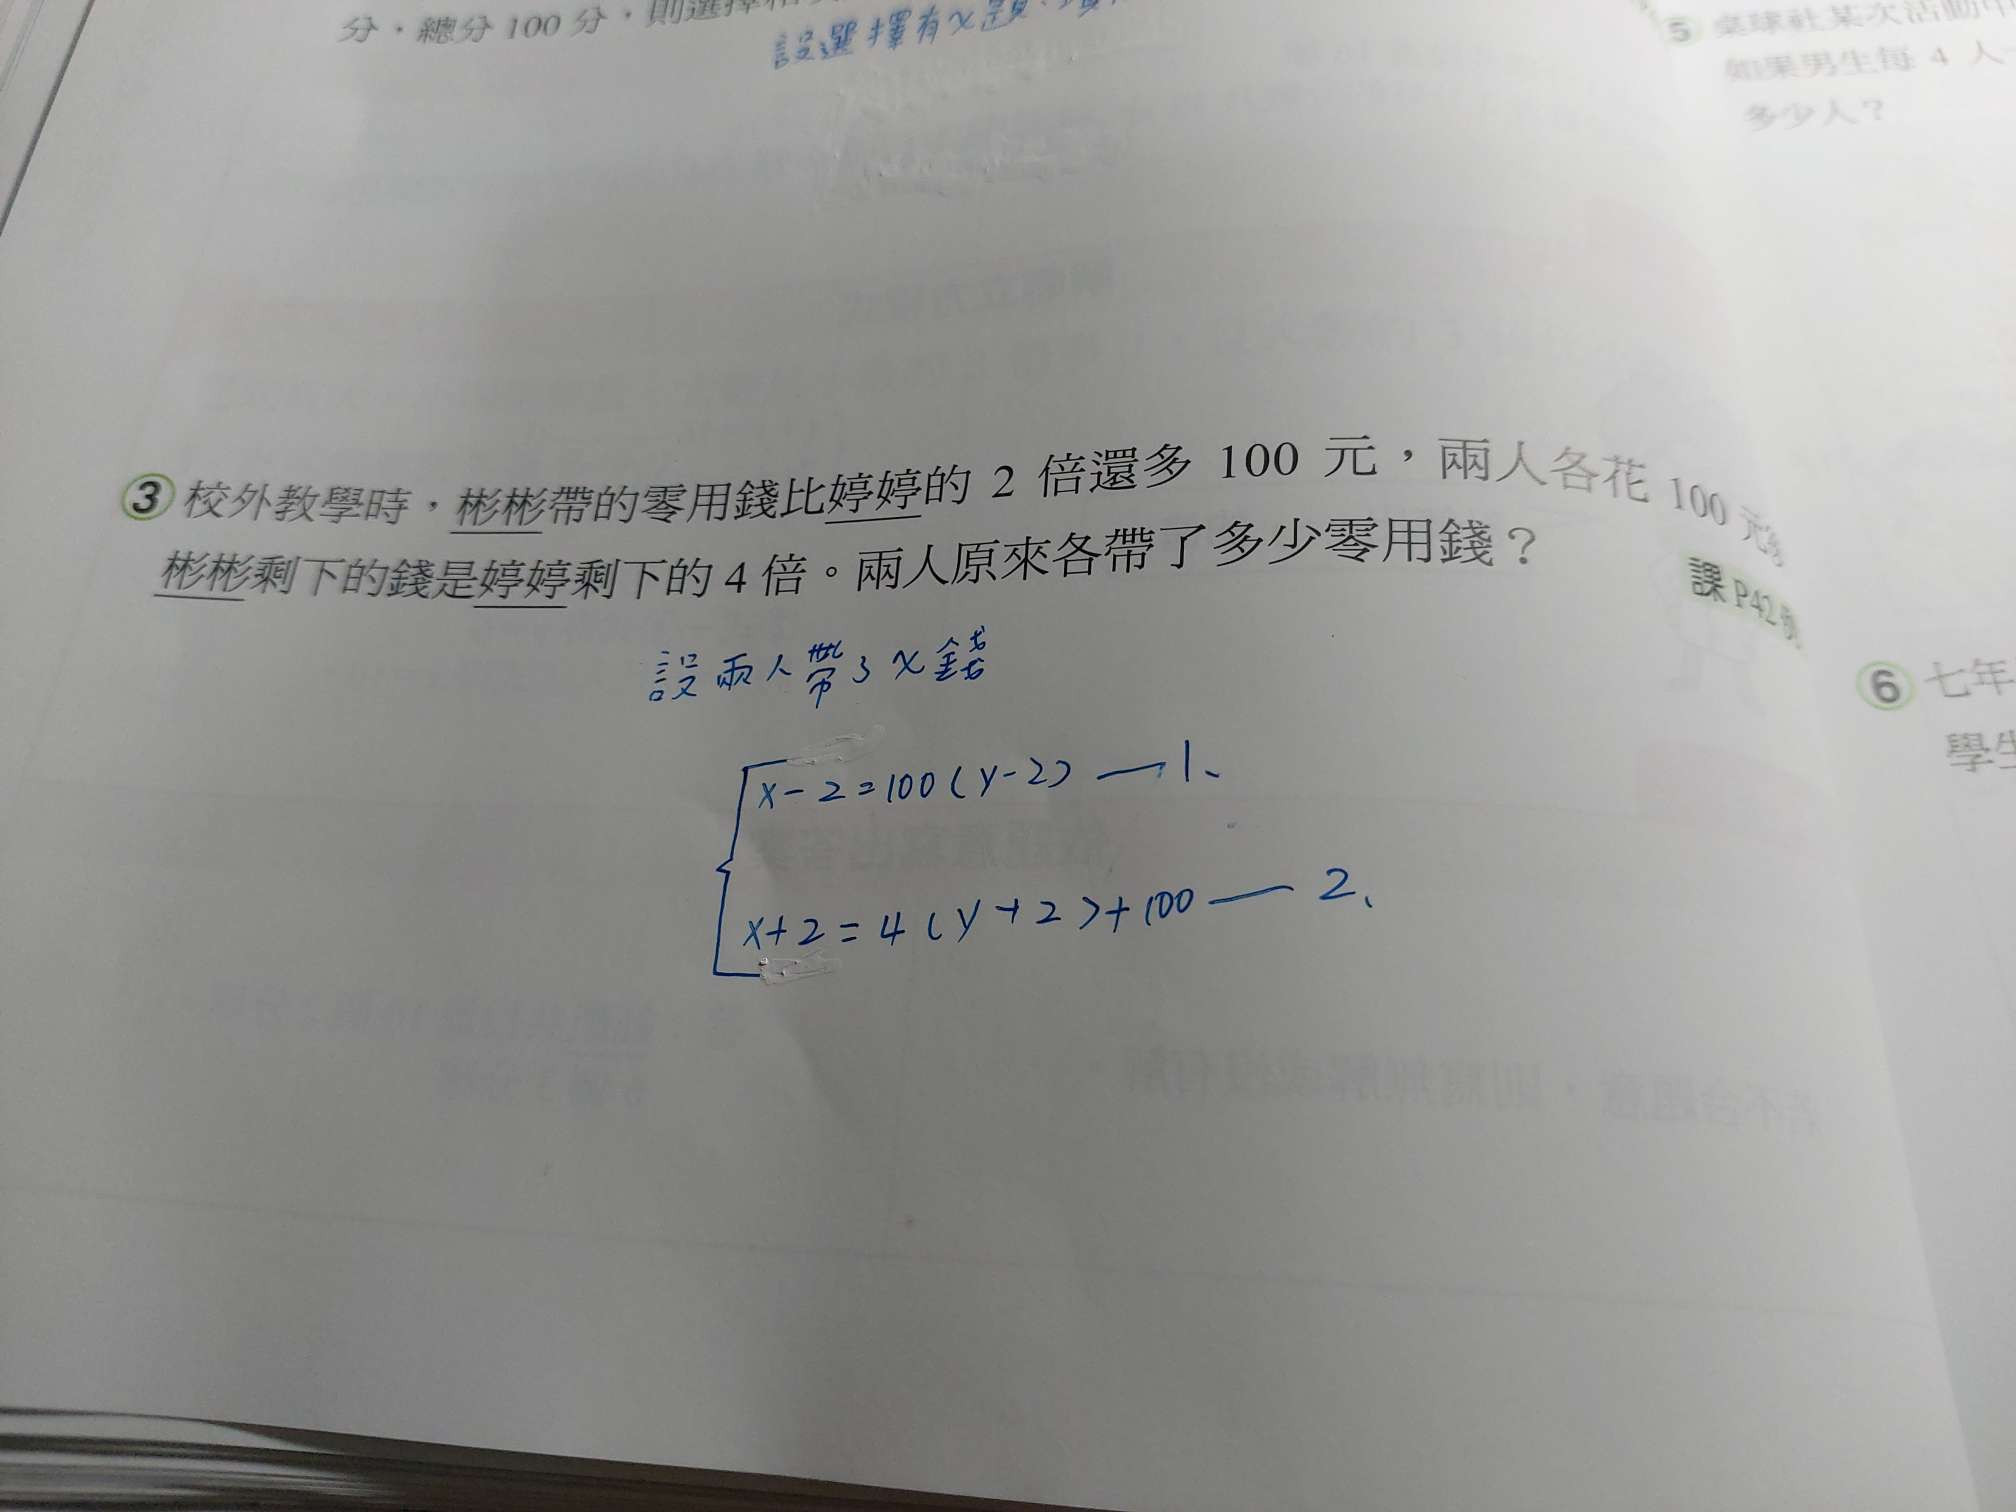 分,總分 100 分,則選擇
設選擇有x題、
③ 校外教學時,彬彬帶的零用錢比婷婷的 2 倍還多 100 元,兩人各花 100 元
彬彬剩下的錢是婷婷剩下的 4 倍。兩人原來各帶了多少零用錢?
課P42
設兩人帶了x錢
x-2=100(y-2) — 1、
x+2=4(y+2)+100 — 2、
5 桌球社某次活動中
如果男生每 4 人
多少人?
6 七年
學生